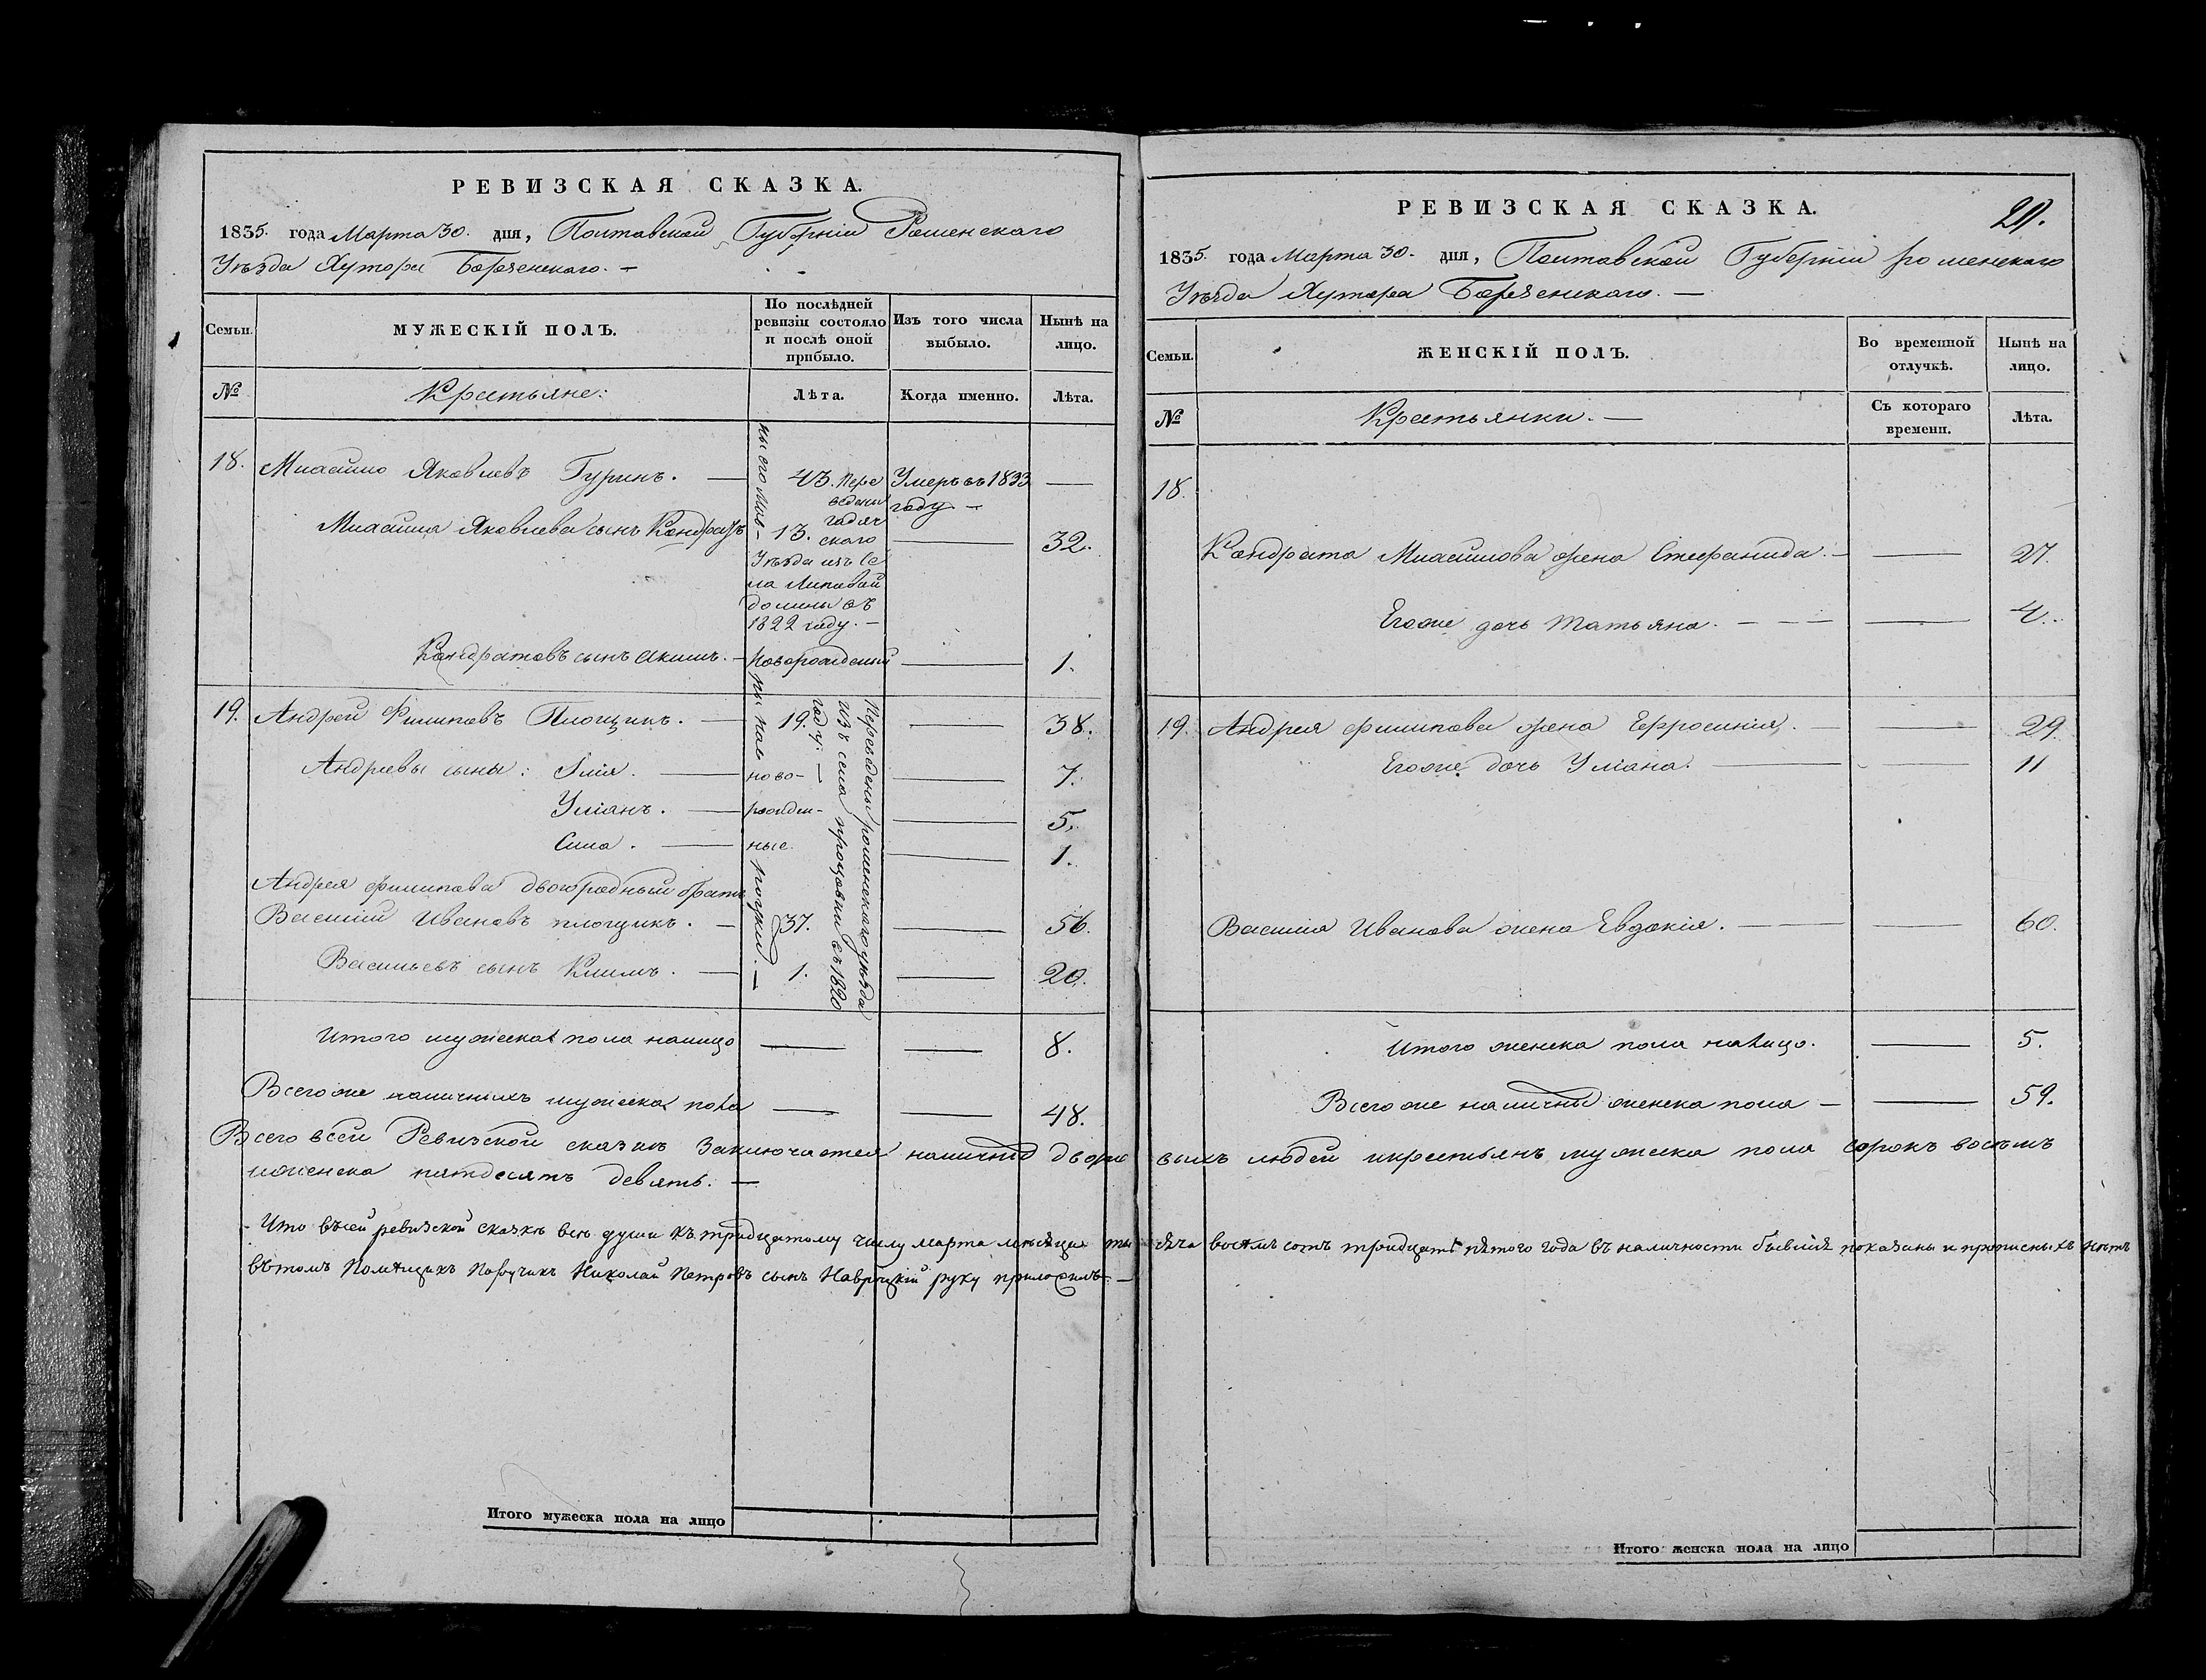 РЕВИЗСКАЯ СКАЗКА.
1835. года Марта 30. дня, Полтавской Губерніи Роменскаго
Уѣзда Хутора
Семьи.
МУЖЕСКІЙ ПОЛЪ.
По послѣдней ревизіи состояло и послѣ оной прибыло.
Изъ того числа выбыло.
Нынѣ на лицо.
№
Крестьяне:
Лѣта.
Когда именно.
Лѣта.
18. Яковлевъ Гуринъ. — 43. Пере Умеръ въ 1833 —
ведены году —
гадяч
Яковлева сынъ Кондратъ — 13. скаго — 32.
Уѣзда изъ Се
ла Липовай
долины въ
1822 году. —
Кондратовъ сынъ Акимъ. — Новорожденный — 1.
19. Андрей Филиповъ Площикъ. — 19. — 38.
Андреевы сыны: Илія. — ново- — 7.
Уліанъ. — рожден- — 5.
Сила. — ные. — 1.
Андрея Филипова двоюродный братъ
Василий Ивановъ площикъ. — 37. — 56.
Васильевъ сынъ Климъ. — 1. — 20.
Переведены роменскаго уѣзда
изъ села процовки въ 1820
году. —
Итого мужеска пола налицо — — 8.
Всегоже наличныхъ мужеска пола — — 48.
Всего всей Ревизской сказкѣ Заключается дворо
иженска пятдесятъ девять. —
Что въсей ревизской сказкѣ всѣ души къ тридцатому числу марта мѣсяца ты
вътомъ Помѣщикъ Порутчикъ Николай Петровъ сынъ руку приложилъ —
Итого мужеска пола на лицо
РЕВИЗСКАЯ СКАЗКА.
1835. года Марта 30. дня, Полтавской Губерніи роменскаго
Уѣзда Хутора
Семьи.
ЖЕНСКІЙ ПОЛЪ.
Во временной отлучкѣ.
Нынѣ на лицо.
№
Крестьянки. —
Съ котораго времени.
Лѣта.
18.
Кондрата жена Стефанида. — — 27.
Егоже дочь Татьяна. — — 4.
19. Андрея филипова жена Ефросинія. — — 29.
Егоже дочь Уліана. — — 11
Василія Иванова жена Евдокія. — — 60.
Итого женска пола налицо. — 5.
Всегоже женска пола — — 59.
выхъ людей икрестьянъ мужеска пола сорокъ восемъ
сяча восемъ сотъ тридцать пятого года въ наличности бывшія показаны и прописныхъ нѣтъ
Итого женска пола на лицо